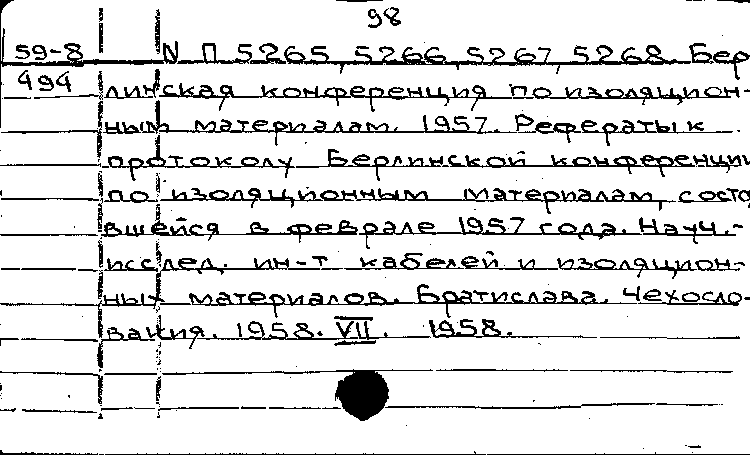 98
59-8 N П 5265, 5266, 5267, 5268. Бер
494 линская конференция по изоляцион-
ным материалам. 1957. Рефераты к
протоколу Берлинской конференции
по изоляционным материалам, состо
вшейся в феврале 1957 года. Науч.-
исслед. ин-т кабелей и изоляцион-
ных материалов. Братислава. Чехосло-
вакия. 1958. VII. 1958.